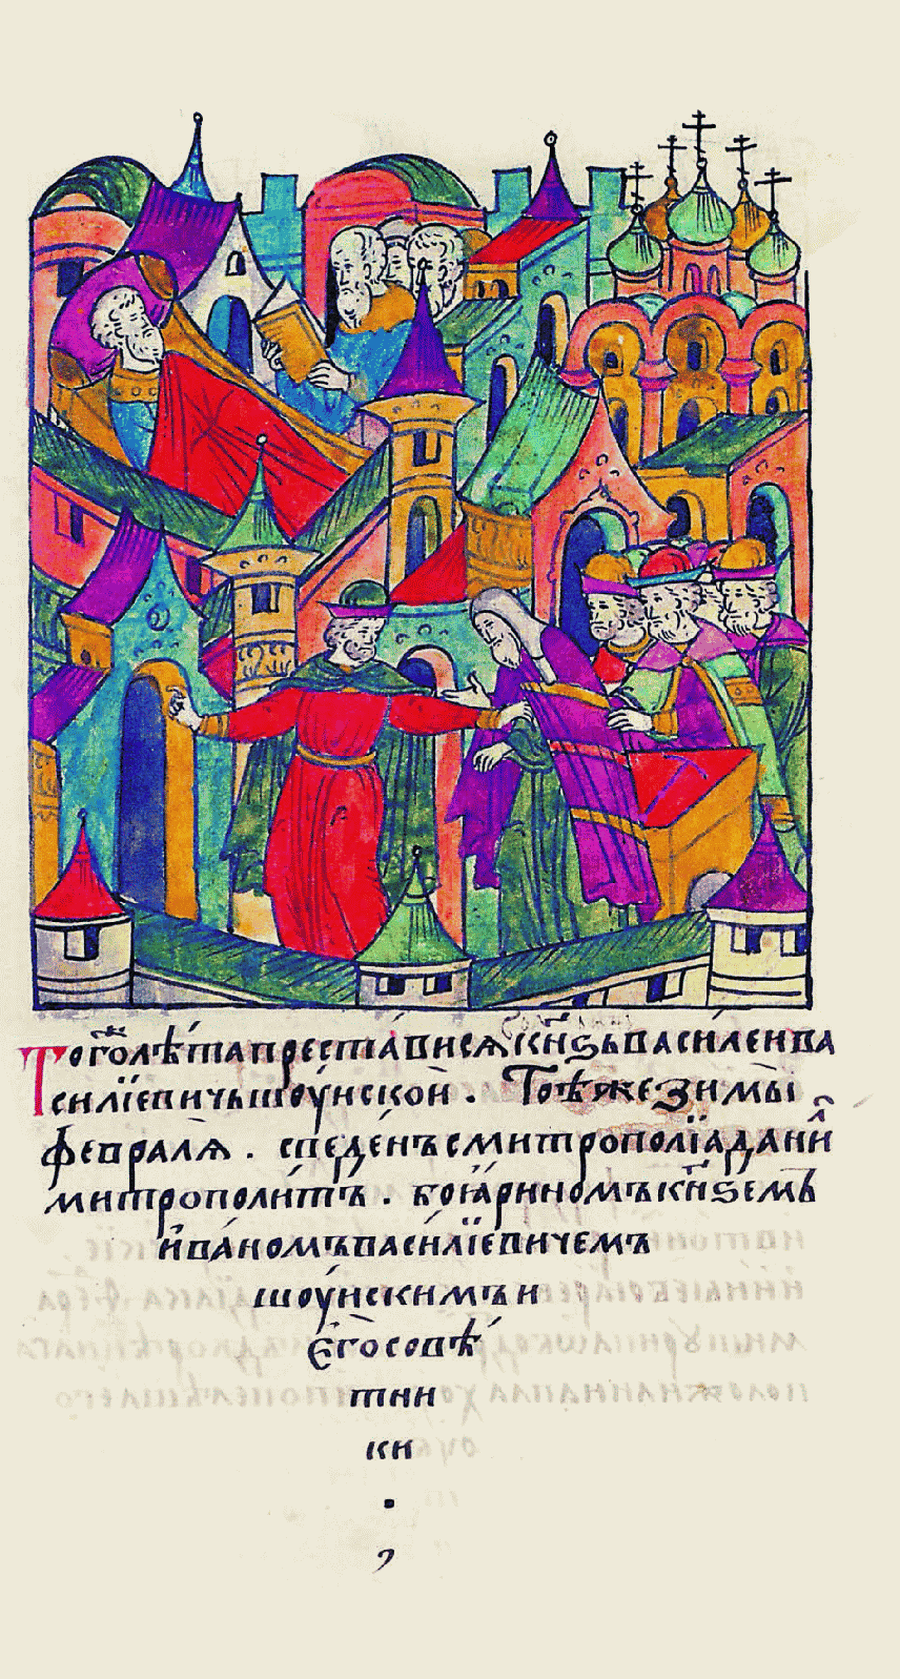 Тогоⷤ лѣта престависѧ кн҃ѕь василеи ва
силїевичь шоуискои . Тоѣже зимы
февралѧ . сведенъ с митрополїа дани́и
митрополи́тъ . боꙗриномъ кн҃ѕемъ
ива́номъ васи́лїевичемъ
шоу́искимъ и
єго совѣ́
тни
ки
.